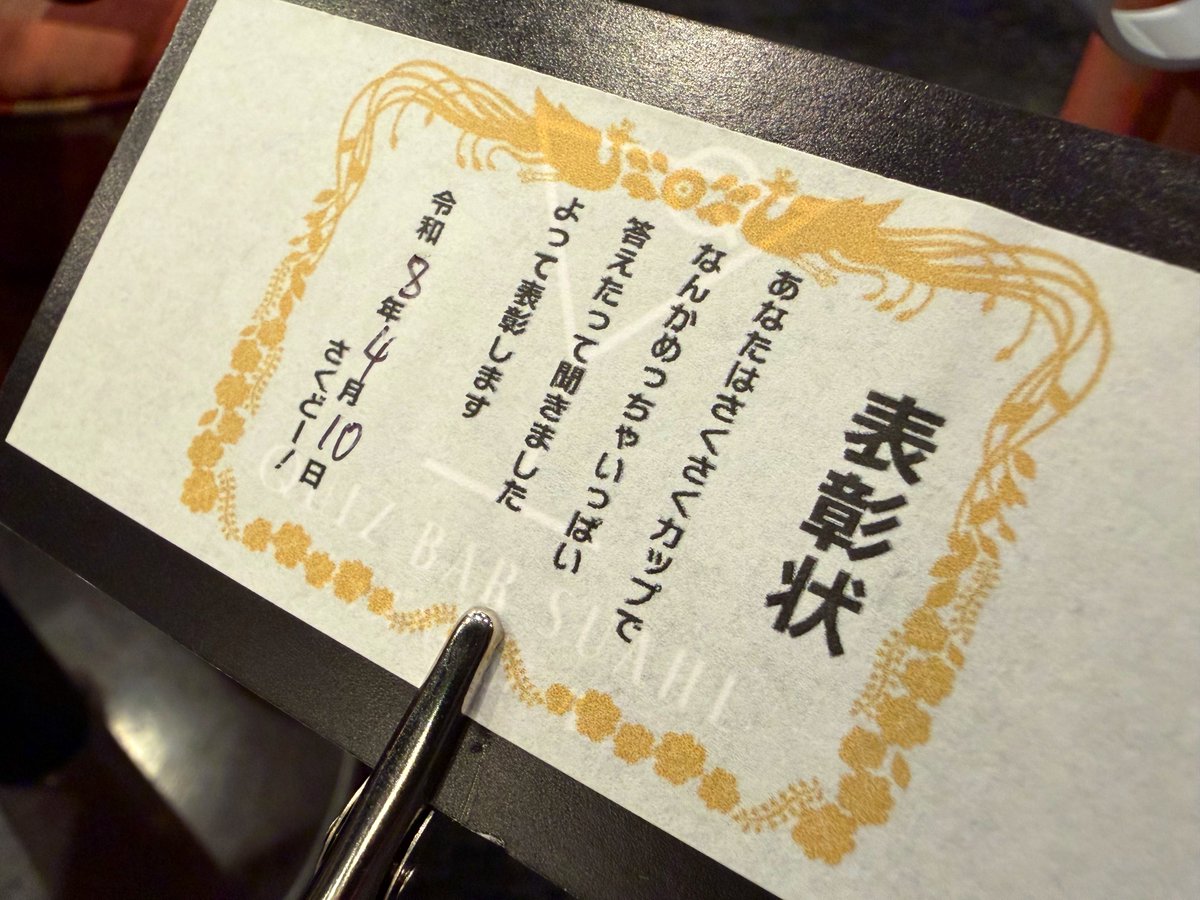 表彰状
あなたはさくさくカップで
なんかめっちゃいっぱい
答えたって聞きました
よって表彰します
令和8年4月10日
さくどー!
QUIZ BAR SUAHI